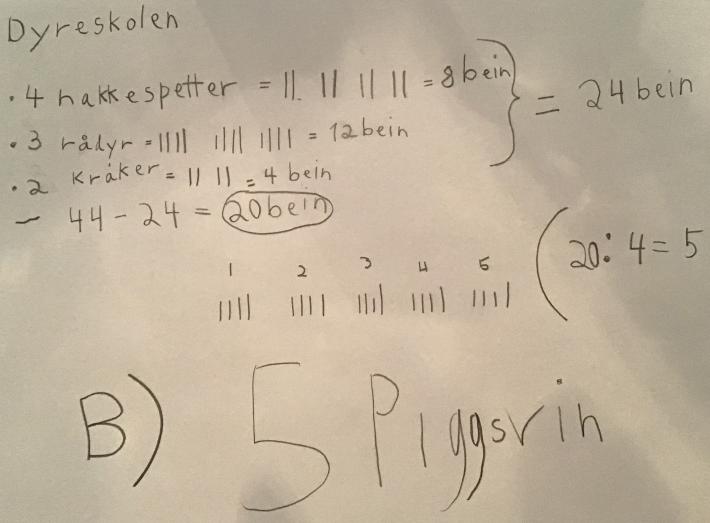 Dyreskolen
• 4 hakkespetter = || || || || = 8 bein } = 24 bein
• 3 rådyr = |||| |||| |||| = 12 bein
• 2 Kråker = || || = 4 bein
– 44 - 24 = 20 bein
(20 : 4 = 5
1 2 3 4 5
|||| |||| |||| |||| ||||
B) 5 Piggsvin